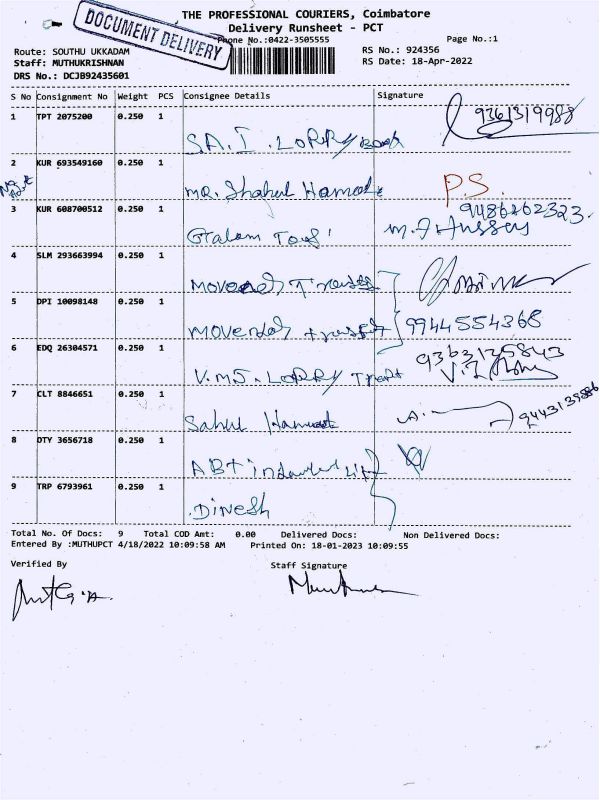 THE PROFESSIONAL COURIERS, Coimbatore
DOCUMENT DELIVERY
Delivery Runsheet - PCT
Phone No.:0422-3505555
Page No.:1
Route: SOUTHU UKKADAM
RS No.: 924356
Staff: MUTHUKRISHNAN
RS Date: 18-Apr-2022
DRS No.: DCJB92435601
S No Consignment No Weight PCS Consignee Details Signature
1 TPT 2075200 0.250 1 9361319988
SA.I. LORRY Book
2 KUR 693549160 0.250 1
mr. Shahul Hameed P.S.
3 KUR 608700512 0.250 1 9486262323.
M.
4 SLM 293663994 0.250 1
5 DPI 10098148 0.250 1
9944554368
6 EDQ 26304571 0.250 1 9363125843
V.M.S. LORRY
7 CLT 8846651 0.250 1
Sahul Hameed 9443139886
8 DTY 3656718 0.250 1
ABT
9 TRP 6793961 0.250 1
Dinesh
Total No. Of Docs: 9 Total COD Amt: 0.00 Delivered Docs: Non Delivered Docs:
Entered By :MUTHUPCT 4/18/2022 10:09:58 AM Printed On: 18-01-2023 10:09:55
Verified By Staff Signature